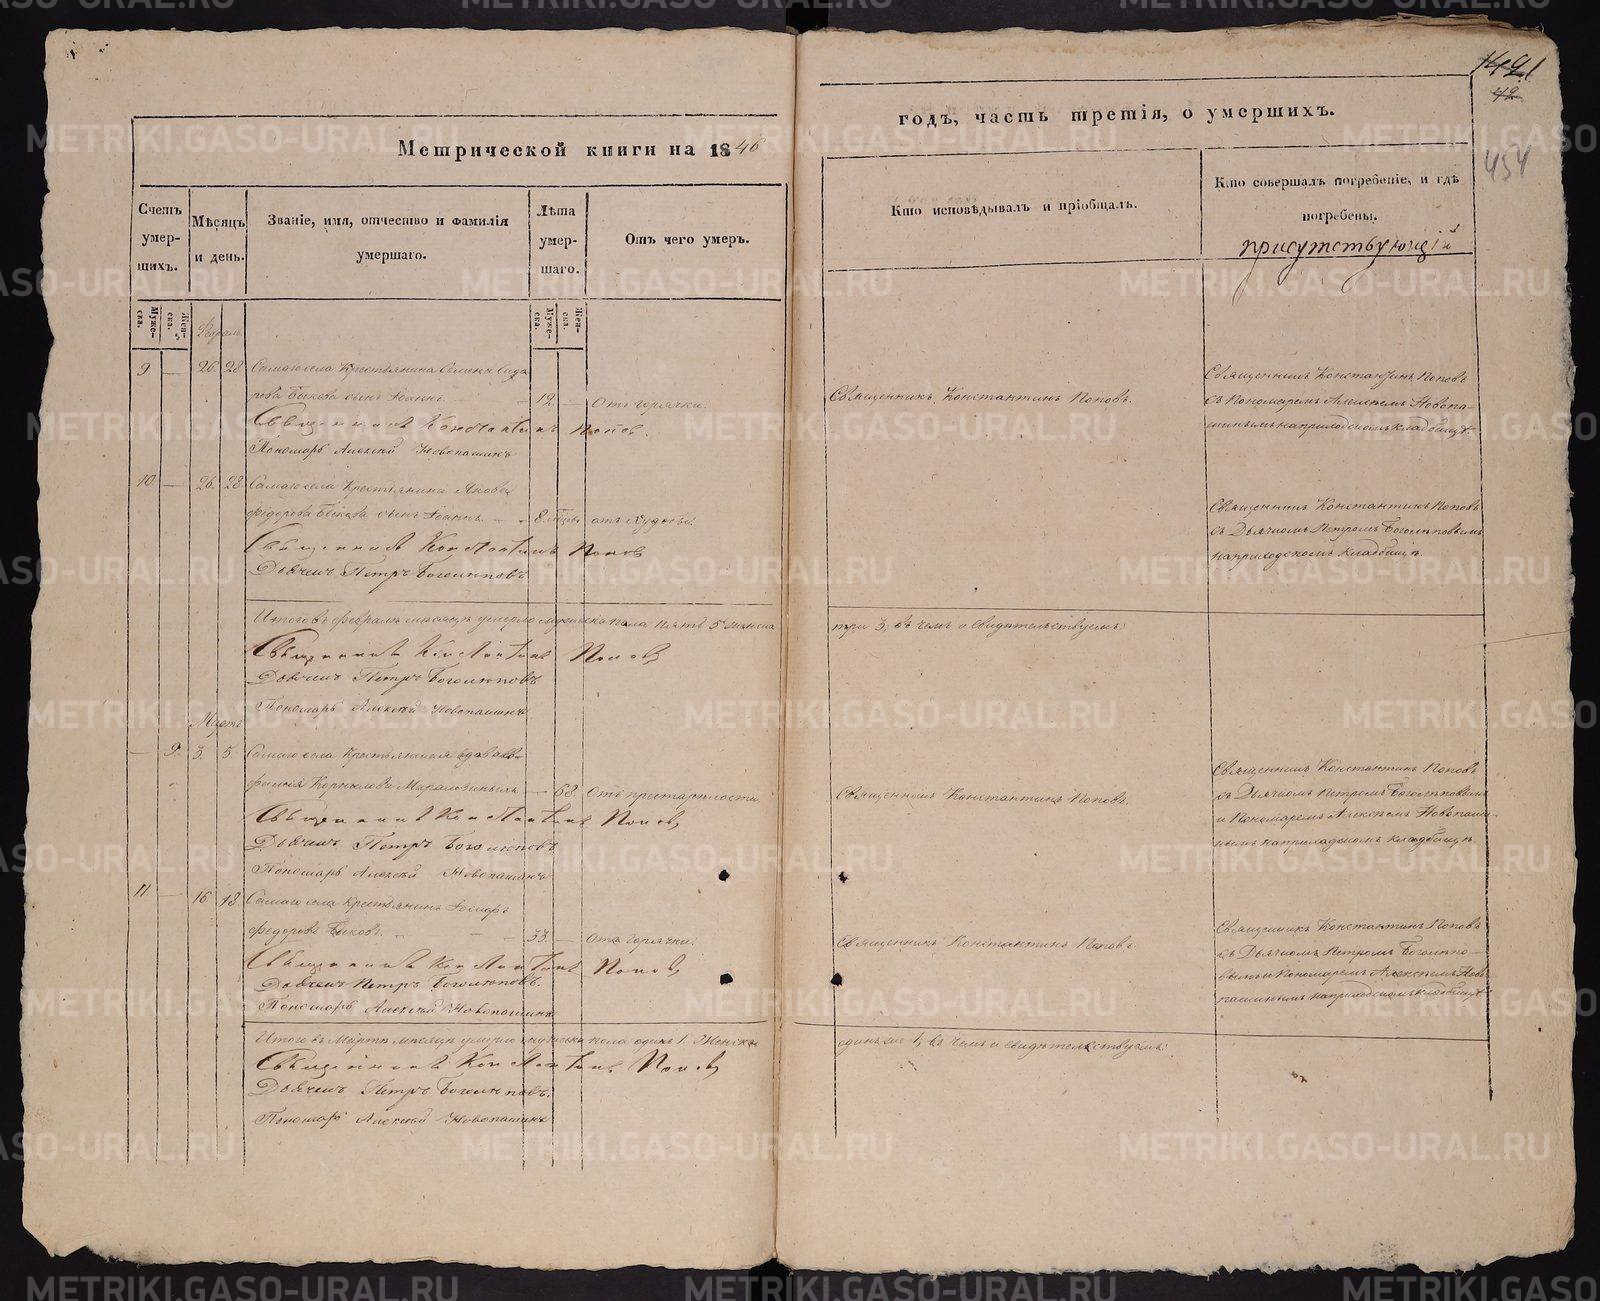 Метрической книги на 1846
годъ, часть третія, о умершихъ.
1421
42
454
Счетъ умер-шихъ.
Мѣсяцъ и день.
Званіе, имя, отчество и фамилія умершаго.
Лѣта умер-шаго.
Отъ чего умеръ.
Кто исповѣдывалъ и пріобщалъ.
Кто совершалъ погребеніе, и гдѣ погребены.
присутствующій
Муже-ска.
Жен-ска.
Муже-ска.
Жен-ска.
Февраль
9 — 26. 28. Самаго села Крестьянина Семена Сидо
рова Быкова сынъ Іоаннъ — 12. — Отъ горячки.
Священникъ Константинъ Поповъ.
Священникъ Константинъ Поповъ
съ Пономаремъ Алексѣемъ Новопа-
шинымъ на приходскомъ кладбищѣ.
Священникъ Константинъ Попов.
Пономарь Алексѣй Новопашинъ
10. — 26. 28. Самаго села Крестьянина Якова
Федорова Быкова сынъ Іоаннъ — 8 отъ худобы.
Священникъ Константинъ Поповъ
съ Дьячкомъ Петромъ Боголѣповымъ
на приходскомъ кладбищѣ.
Священникъ Константинъ Попов
Дьячекъ Петръ Боголѣповъ
Итого въ февралѣ месяцѣ умерло мужеска пола пять 5 женска
три 3; въ чемъ и свидѣтельствуемъ:
Священникъ Константинъ Попов
Дьячекъ Петръ Боголѣповъ
Пономарь Алексѣй Новопашинъ
Мартъ
— 9. 3. 5. Самаго села Крестьянская вдова
Корнилова — 68. Отъ престарѣлости.
Священникъ Константинъ Поповъ.
Священникъ Константинъ Поповъ
съ Дьячкомъ Петромъ Боголѣповымъ
и Пономаремъ Алексѣемъ Новопаши-
нымъ на приходскомъ кладбищѣ.
Священникъ Константинъ Попов
Дьячекъ Петръ Боголѣповъ
Пономарь Алексѣй Новопашинъ
11 — 16. 18. Самаго села Крестьянинъ
Федоровъ Быковъ. — 33. — Отъ горячки.
Священникъ Константинъ Поповъ
Священникъ Константинъ Поповъ
съ Дьячкомъ Петромъ Боголѣпо-
вымъ и Пономаремъ Алексѣемъ Ново
пашинымъ на приходскомъ кладбищѣ
Священникъ Константинъ Попов
Дьячекъ Петръ Боголѣповъ.
Пономарь Алексѣй Новопашинъ
Итого въ Мартѣ месяцѣ умерло мужеска пола одинъ 1. Женска
одинъ же 1, въ чемъ и свидѣтельствуемъ:
Священникъ Константинъ Попов
Дьячекъ Петръ Боголѣповъ.
Пономарь Алексѣй Новопашинъ
METRIKI.GASO-URAL.RU